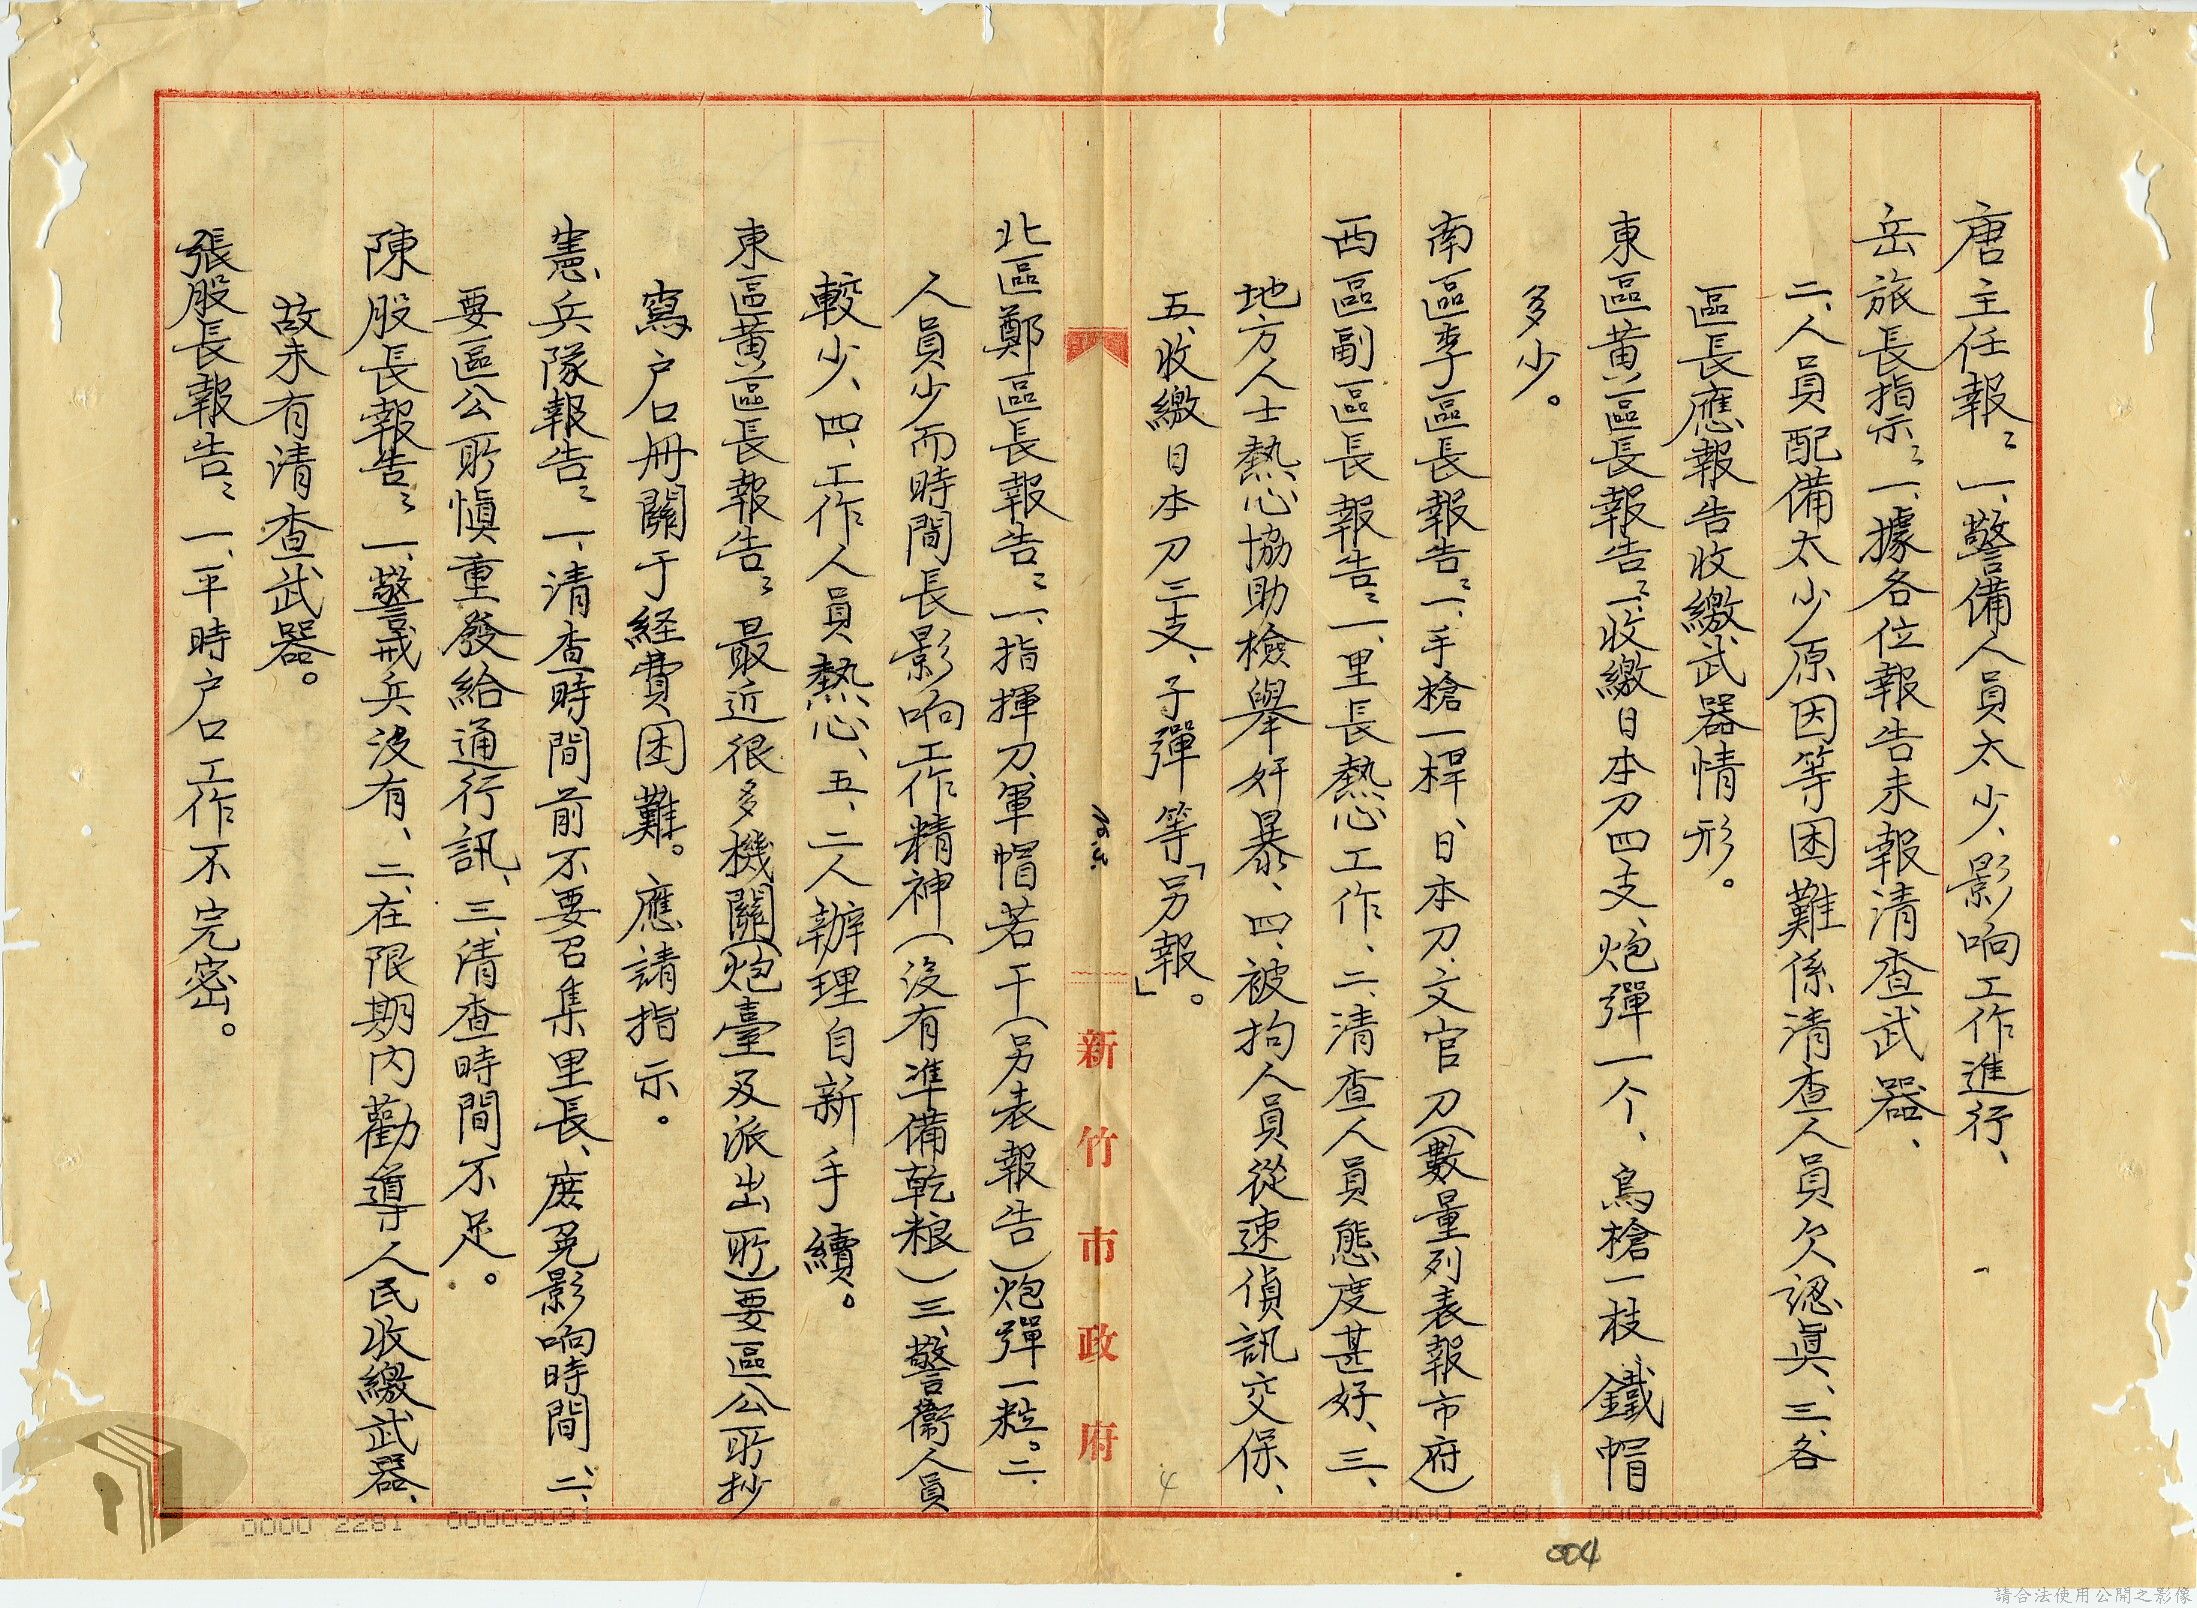 唐主任報：一、警備人員太少、影响工作進行、
岳旅長指示：一、據各位報告未報清查武器、
二、人員配備太少原因等困難係清查人員欠認眞、三、各
區長應報告收繳武器情形。
東區黄區長報告：一、收繳日本刀四支、炮彈一个、鳥槍一枝、鐵帽
多少。
南區李區長報告：一、手槍一桿、日本刀、文官刀（數量列表報市府）
西區副區長報告：一、里長熱心工作、二、清查人員態度甚好、三、
地方人士熱心協助檢舉奸暴、四、被拘人員從速偵訊交保、
五、收繳日本刀三支、子彈等「另報」。
新竹市政府
4
北區鄭區長報告：一、指揮刀、軍帽若干（另表報告）炮彈一粒。二、
人員少而時間長影响工作精神（没有準備乾粮）三、警衞人員
較少、四、工作人員熱心、五、二人辦理自新手續。
東區黄區長報告：最近很多機關（炮臺及派出所）要區公所抄
寫户口册關于経費困難。應請指示。
憲兵隊報告：一、清查時間前不要召集里長、庶免影响時間、二、
要區公所愼重發給通行訊、三、清查時間不足。
陳股長報告：一、警戒兵没有、二、在限期内勸導人民收繳武器、
故未有清查武器。
張股長報告：一、平時户口工作不完密。
0000 2281 00003091
0000 2281 00003090
004
請合法使用公開之影像